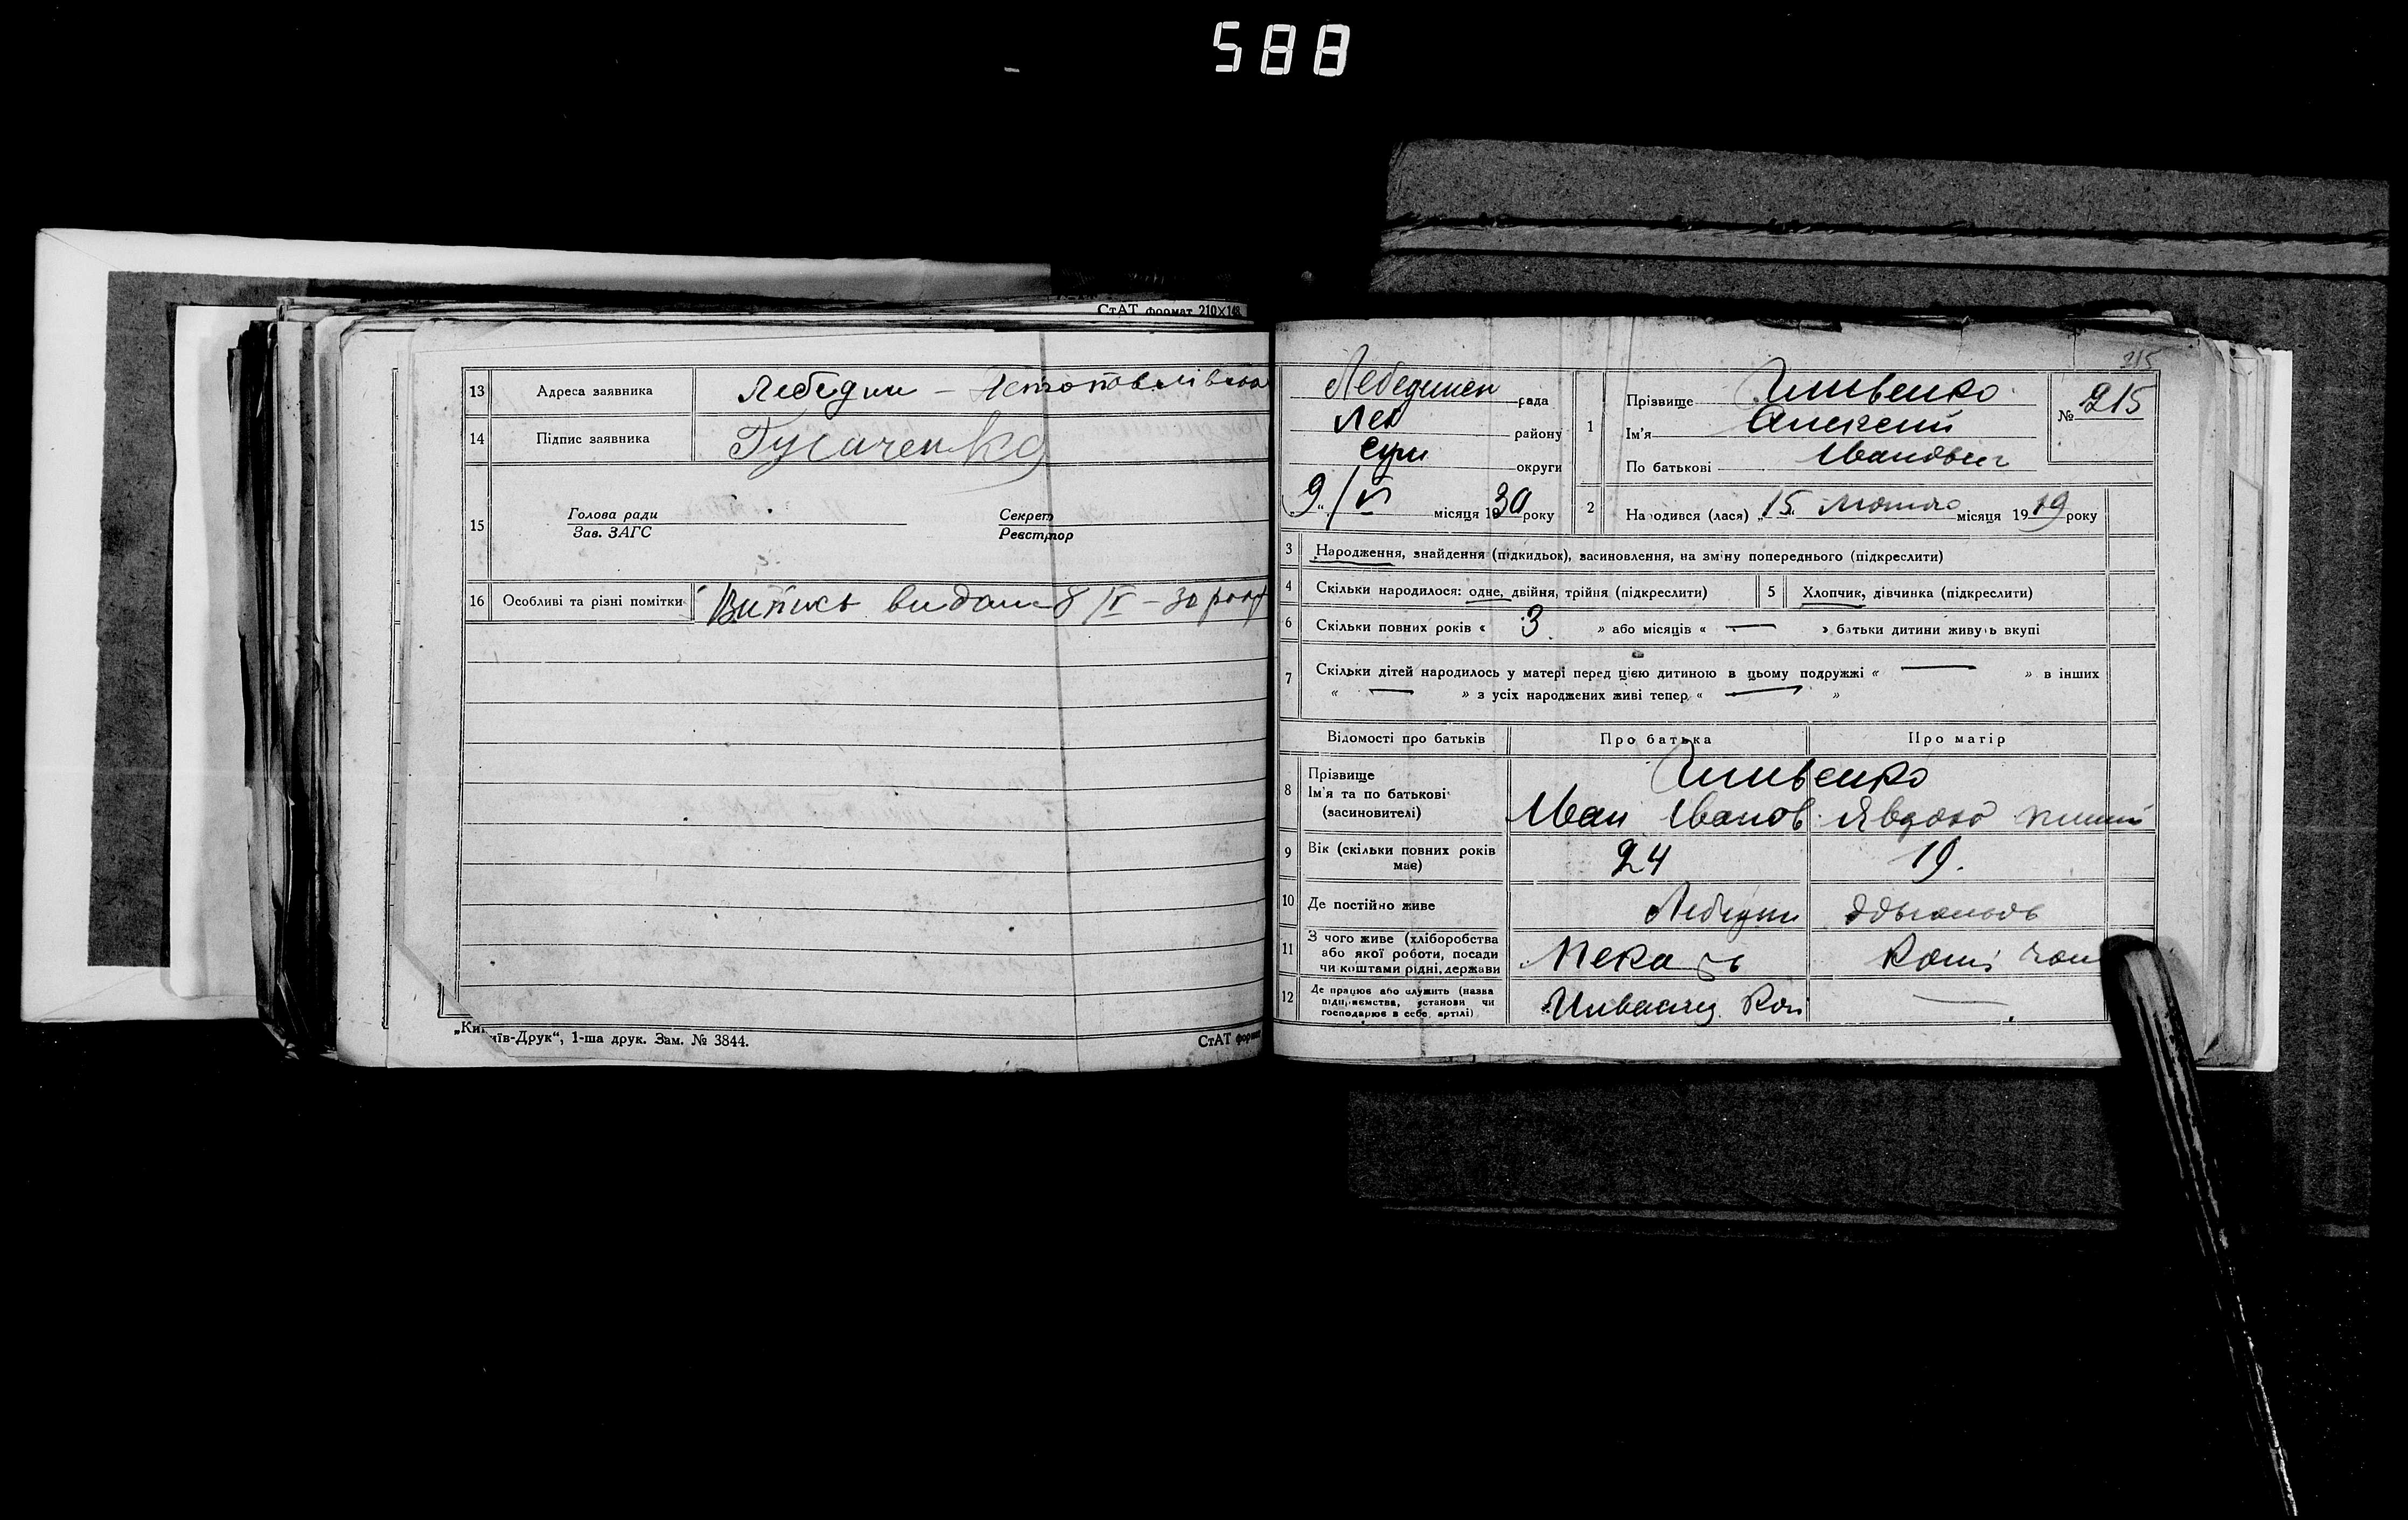 588
СтАТ формат 210×148
13 Адреса заявника Лебедин –
14 Підпис заявника Гусаченко
15 Голова ради
Зав. ЗАГС
Секрет
Реєстртор
16 Особливі та різні помітки Витись видана 8/V – 30 року
„Ки їв-Друк“, 1-ша друк. Зам. № 3844.
СтАТ формат
215
Лебединск рада
Леб району
Сум округи
9/V місяця 1930 року
1 Прізвище
Ім'я Алексей
По батькові Іванович
№ 215
2 Народився (лася) „15„ лютого місяця 1919 року
3 Народження, знайдення (підкидьок), засиновлення, на зміну попереднього (підкреслити)
4 Скільки народилося: одне, двійня, трійня (підкреслити)
5 Хлопчик, дівчинка (підкреслити)
6 Скільки повних років « 3 » або місяців « — » батьки дитини живуть вкупі
7 Скільки дітей народилось у матері перед цією дитиною в цьому подружжі « — » в інших
« — » з усіх народжених живі тепер « — »
Відомості про батьків Про батька Про матір
8 Прізвище
Ім'я та по батькові
(засиновителі)
Иван Иванов
9 Вік (скільки повних років
має)
24 19.
10 Де постійно живе Лебедин
11 З чого живе (хліборобства
або якої роботи, посади
чи коштами рідні, держави
Пекарь
12 Де працює або служить (назва
підприємства, установи чи
господарює в себе, артілі)
—